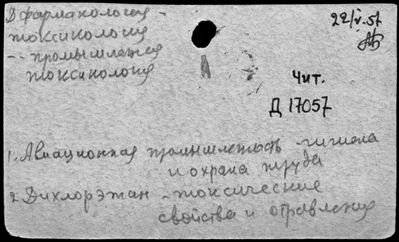 Фармакология -
токсикология
-- промышленная
токсикология
22/V.57
Чит.
Д 17057
1. Авиационная промышленность - гигиена
и охрана труда
2. Дихлорэтан - токсические
свойства и отравления